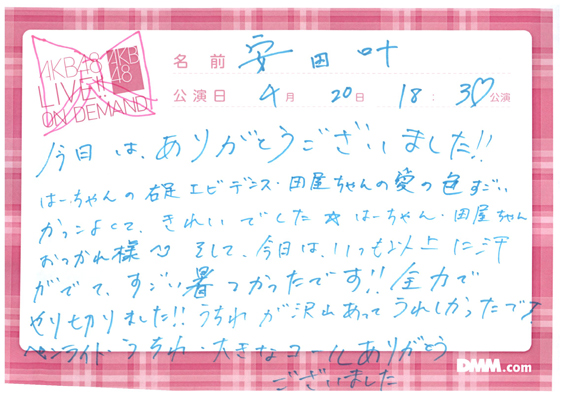 AKB48
LIVE!!
ON DEMAND
AKB
48
名前 安田叶
公演日 4月 20日 18:30公演
今日は、ありがとうございました!!
はーちゃんの右足エビデンス・田屋ちゃんの愛の色すごい
かっこよくて、きれいでした☆はーちゃん・田屋ちゃん
おつかれ様 そして、今日は、いつも以上に汗
がでて、すごい暑つかったです!!全力で
やり切りました!!うちわが沢山あってうれしかったです!
ペンライト・うちわ・大きなコールありがとう
ございました
DMM.com